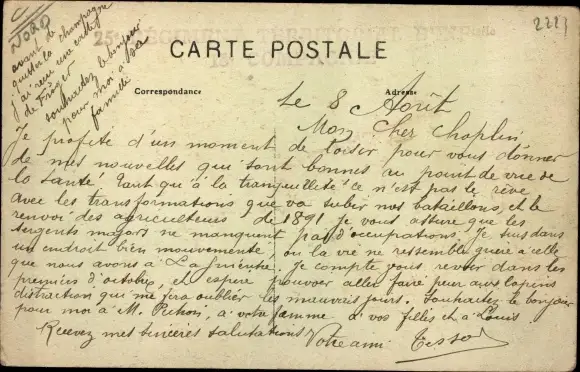 2221
NORD
avant de
quitter la champagne
j'ai reçu une carte
de Fréger
souhaitez le bonjour
pour moi à sa
famille
25e RÉGIMENT TERRITORIAL D'INF
COMPAGNIE
CARTE POSTALE
Correspondance
Adresse
Le 8 Août
Mon Cher Choplin
Je profite d'un moment de loisir pour vous donner
de mes nouvelles qui sont bonnes au point de vue de
la santé Tant qu'à la tranquilleté ce n'est pas le rêve
avec les transformations que va subir nos bataillons, et le
renvoi des agriculteurs de 1891 je vous assure que les
sergents majors ne manquent pas d'occupations, Je suis dans
un endroit bien mouvementé, ou la vie ne ressemble guère à celle
que nous avons à Je compte vous revoir dans les
premiers d'octobre, et espère pouvoir aller faire peur aux lapins
distraction qui me fera oublier les mauvais jours. Souhaitez le bonjour
pour moi à M. Pichon, à votre femme à vos filles et à Louis
Recevez mes sincères salutations Votre ami Tessot